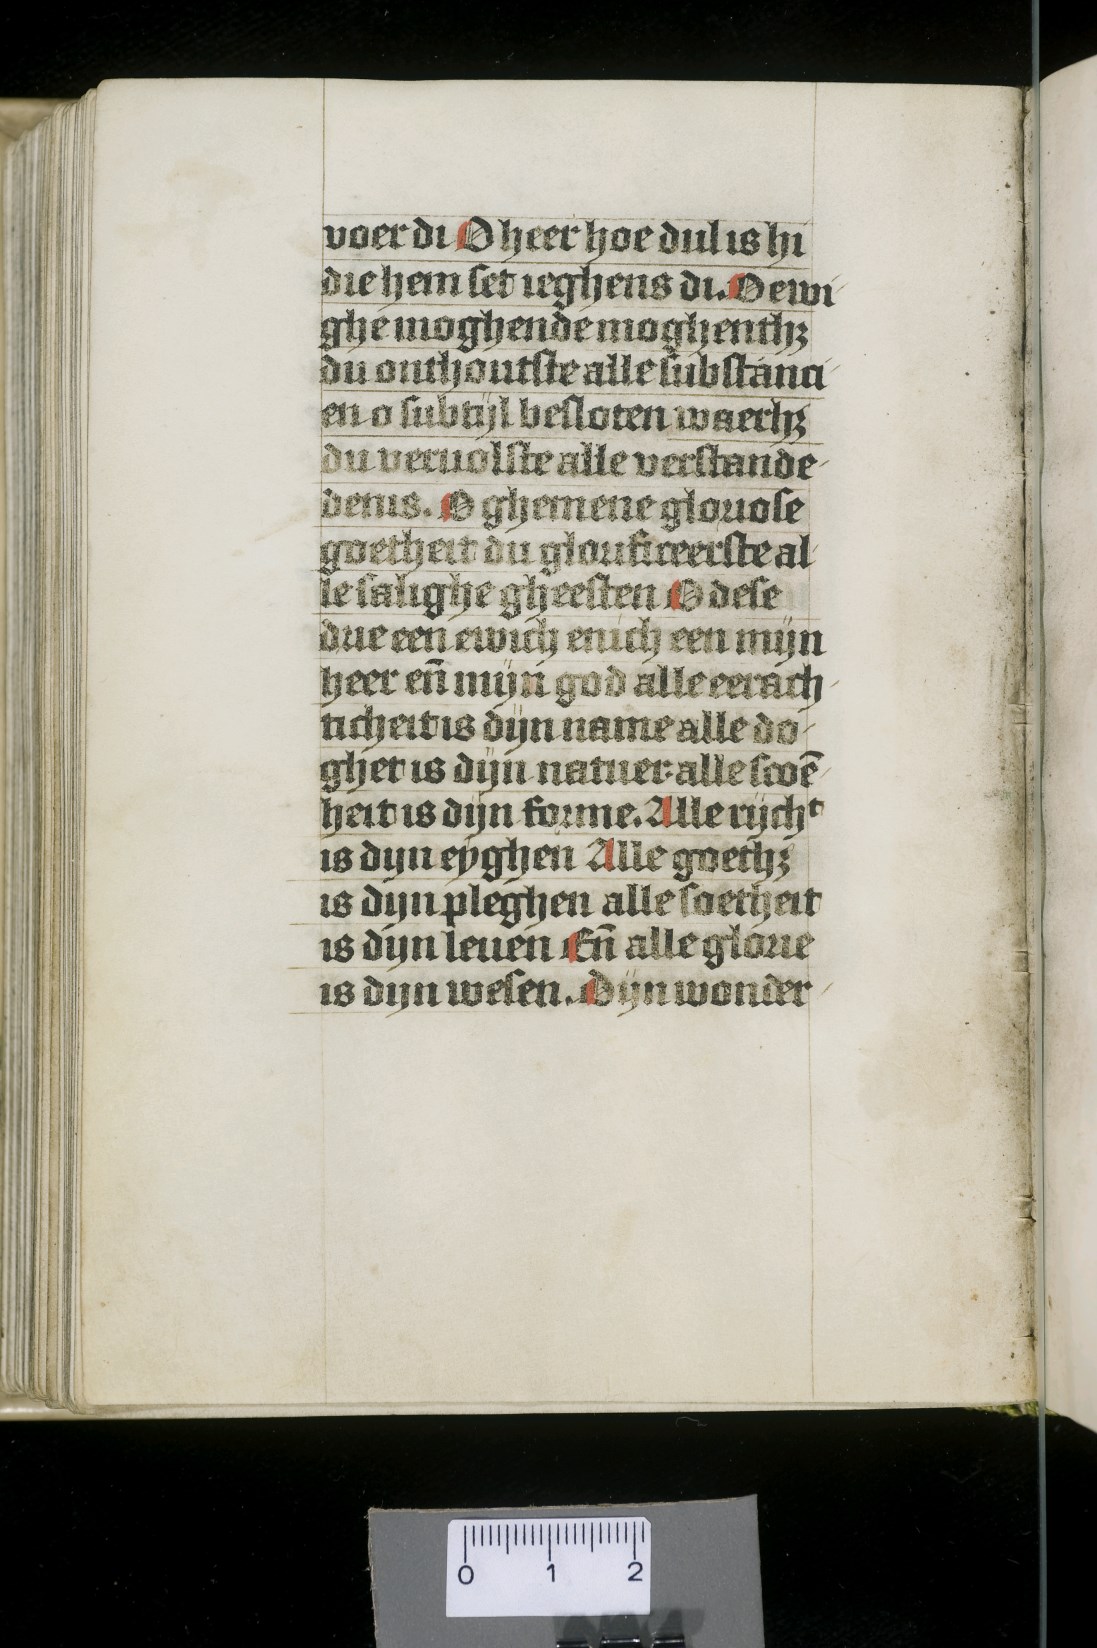 voer di O heer hoe dul is hi
die hem set ieghens di. O ewi
ghe moghende moghenthꝫ
du onthoutste alle substanci
en o subtijl besloten waerhꝫ
du veruolste alle verstande
denis. O ghemene gloriose
goetheit du glorificeerste al
le salighe gheesten O dese
drie een ewich enich een mijn
heer en̄ mijn god alle eerach
ticheit is dijn name alle do
ghet is dijn natuer alle scoē
heit is dijn forme. Alle rijchᵗ
is dijn eyghen Alle goethꝫ
is dijn pleghen alle soetheit
is dijn leuen En̄ alle glorie
is dijn wesen. Dijn wonder
0 1 2